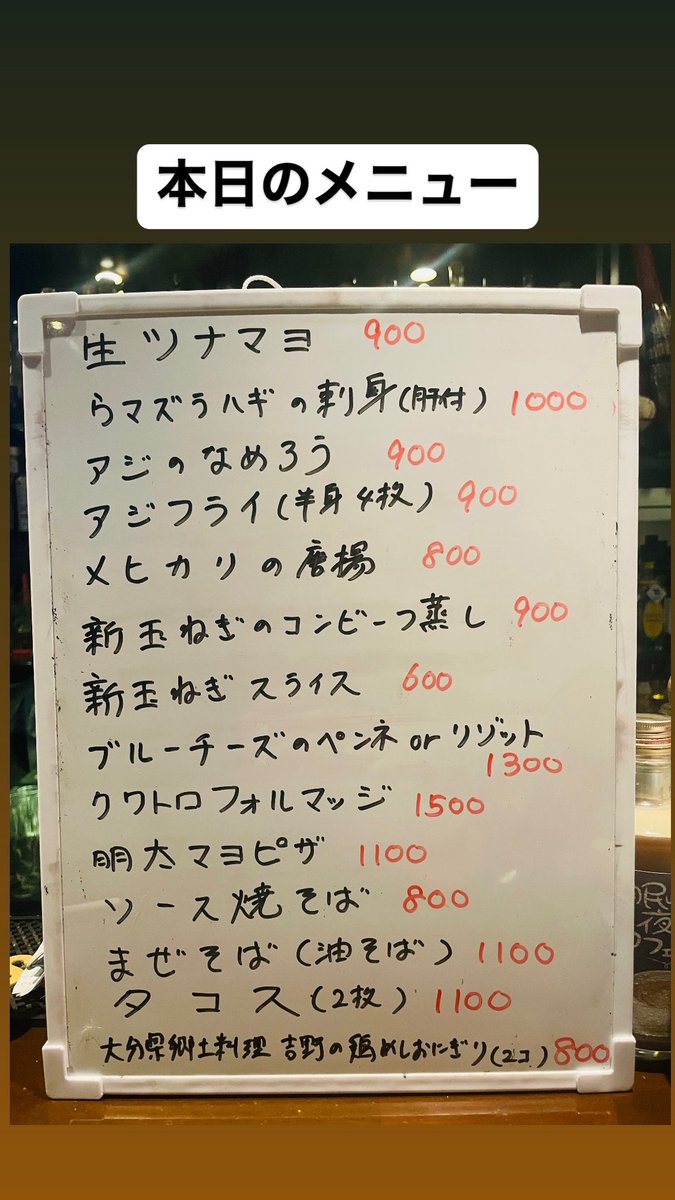 本日のメニュー
生ツナマヨ 900
うマズラハギの刺身(肝付) 1000
アジのなめろう 900
アジフライ(半身4枚) 900
メヒカリの唐揚 800
新玉ねぎのコンビーフ蒸し 900
新玉ねぎスライス 600
ブルーチーズのペンネ or リゾット
1300
クワトロフォルマッジ 1500
明太マヨピザ 1100
ソース焼そば 800
まぜそば(油そば) 1100
タコス(2枚) 1100
大分県郷土料理 吉野の鶏めしおにぎり(2コ) 800